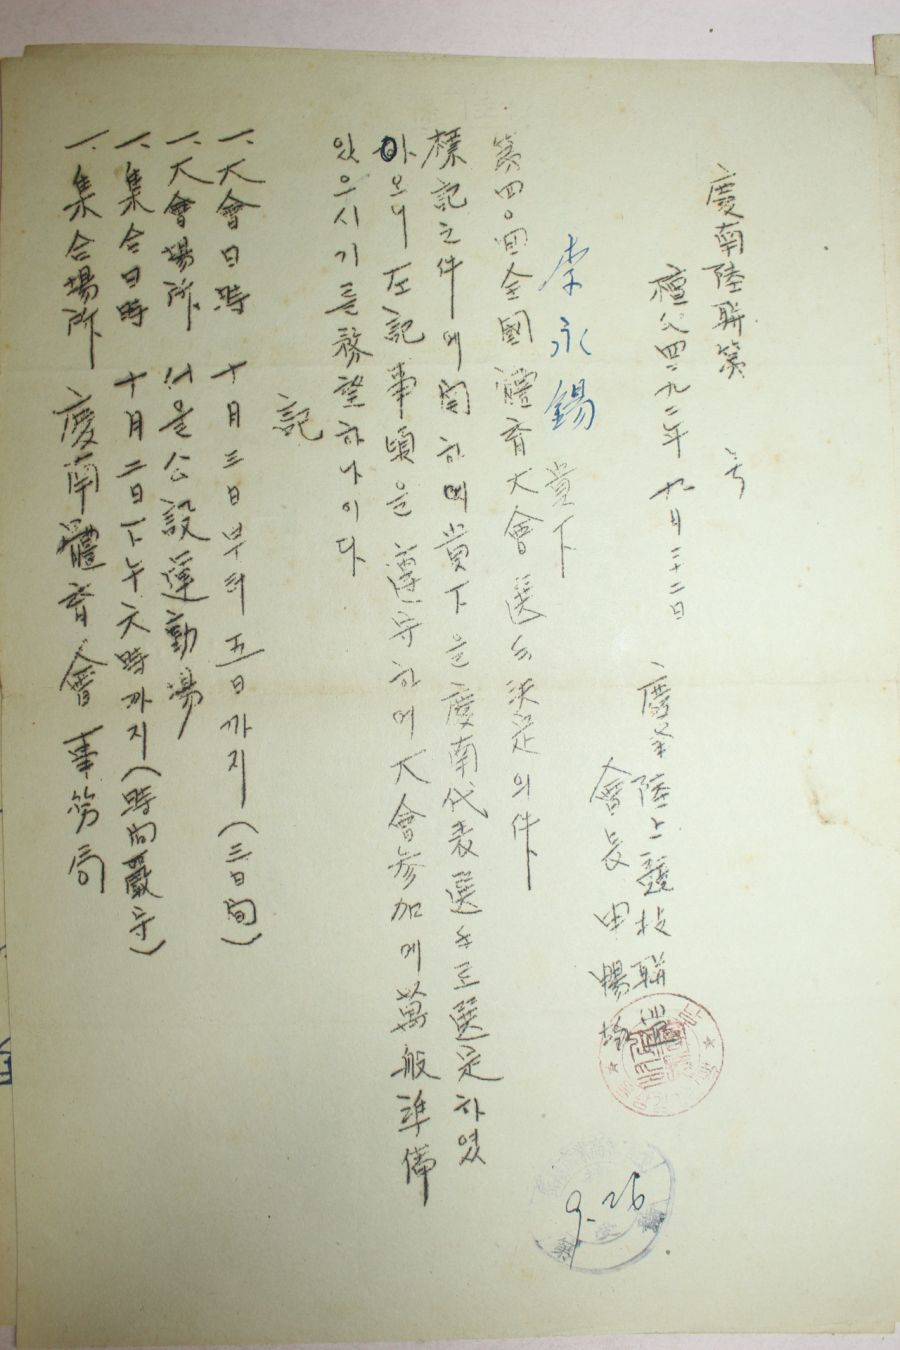 慶南陸聯第　　号
檀父四二九二年 九月二十二日
慶南陸上競技聯盟
會長 申暢
李永錫 貴下
第四〇回全國體育大會選手決定의件
標記之件에關하며貴下을慶南代表選手로選定하였
아오니 左記事項을 遵守하며大會參加에萬般準備
있으시기를務望하나이다
記
一、大會日時 十月三日부터五日까지(三日間)
一、大會場所 서울公設運動場
一、集合日時 十月二日下午六時까지(時間嚴守)
一、集合場所 慶南體育會事務局
9.26